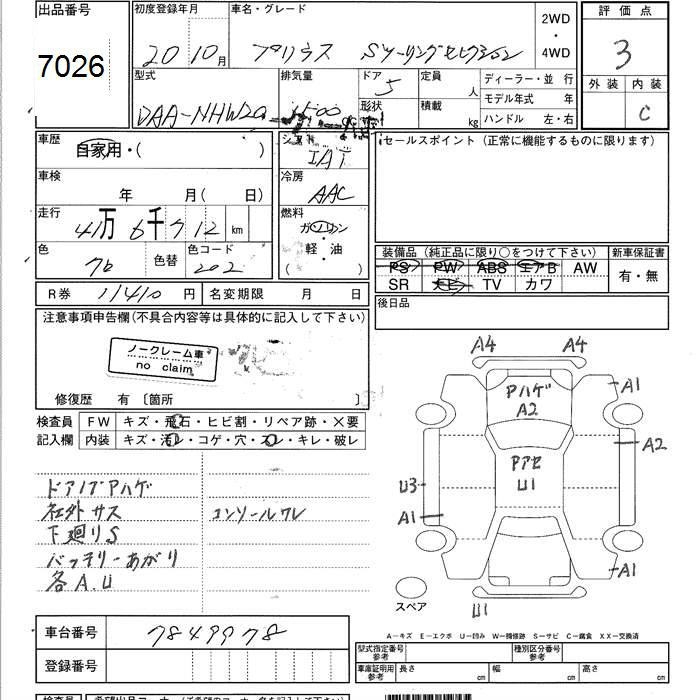 出品番号
7026
初度登録年月
20 10月
車名・グレード
プリウス Sツーリングセレクション
2WD
・
4WD
評価点
3
外装 内装
C
型式
DAA-NHW20
排気量
1500
ドア
5
形状
定員
人
積載
kg
ディーラー・並 行
モデル年式 年
ハンドル 左・右
車歴
自家用・( )
車検
年 月( 日)
走行
4万6千712km
色
黒
色替
色コード
202
シフト
IAT
冷房
AAC
燃料
ガソリン
・
軽・油
( )
セールスポイント (正常に機能するものに限ります)
装備品 (純正品に限り○をつけて下さい)
PS PW ABS エアB AW
SR ナビ TV カワ
新車保証書
有・無
後日品
R券 11410円
名変期限 月 日
注意事項申告欄(不具合内容等は具体的に記入して下さい)
ノークレーム車
no claim
修復歴 有 〔箇所 〕
検査員
記入欄
FW キズ・飛石・ヒビ割・リペア跡・×要
内装 キズ・汚レ・コゲ・穴・スレ・キレ・破レ
ドアノブアハゲ
社外サス
下廻りS
バッテリーあがり
各A.U
コンソールワレ
A4 A4
アハゲ
A2
A1
A2
Pアセ
U1
U3
A1
A1
U1
スペア
A-キズ E-エクボ U-凹み W-補修跡 S-サビ C-腐食 XX-交換済
車台番号
7849978
登録番号
型式指定番号
参考
種別区分番号
参考
車庫証明用
参考
長さ cm
幅 cm
高さ cm